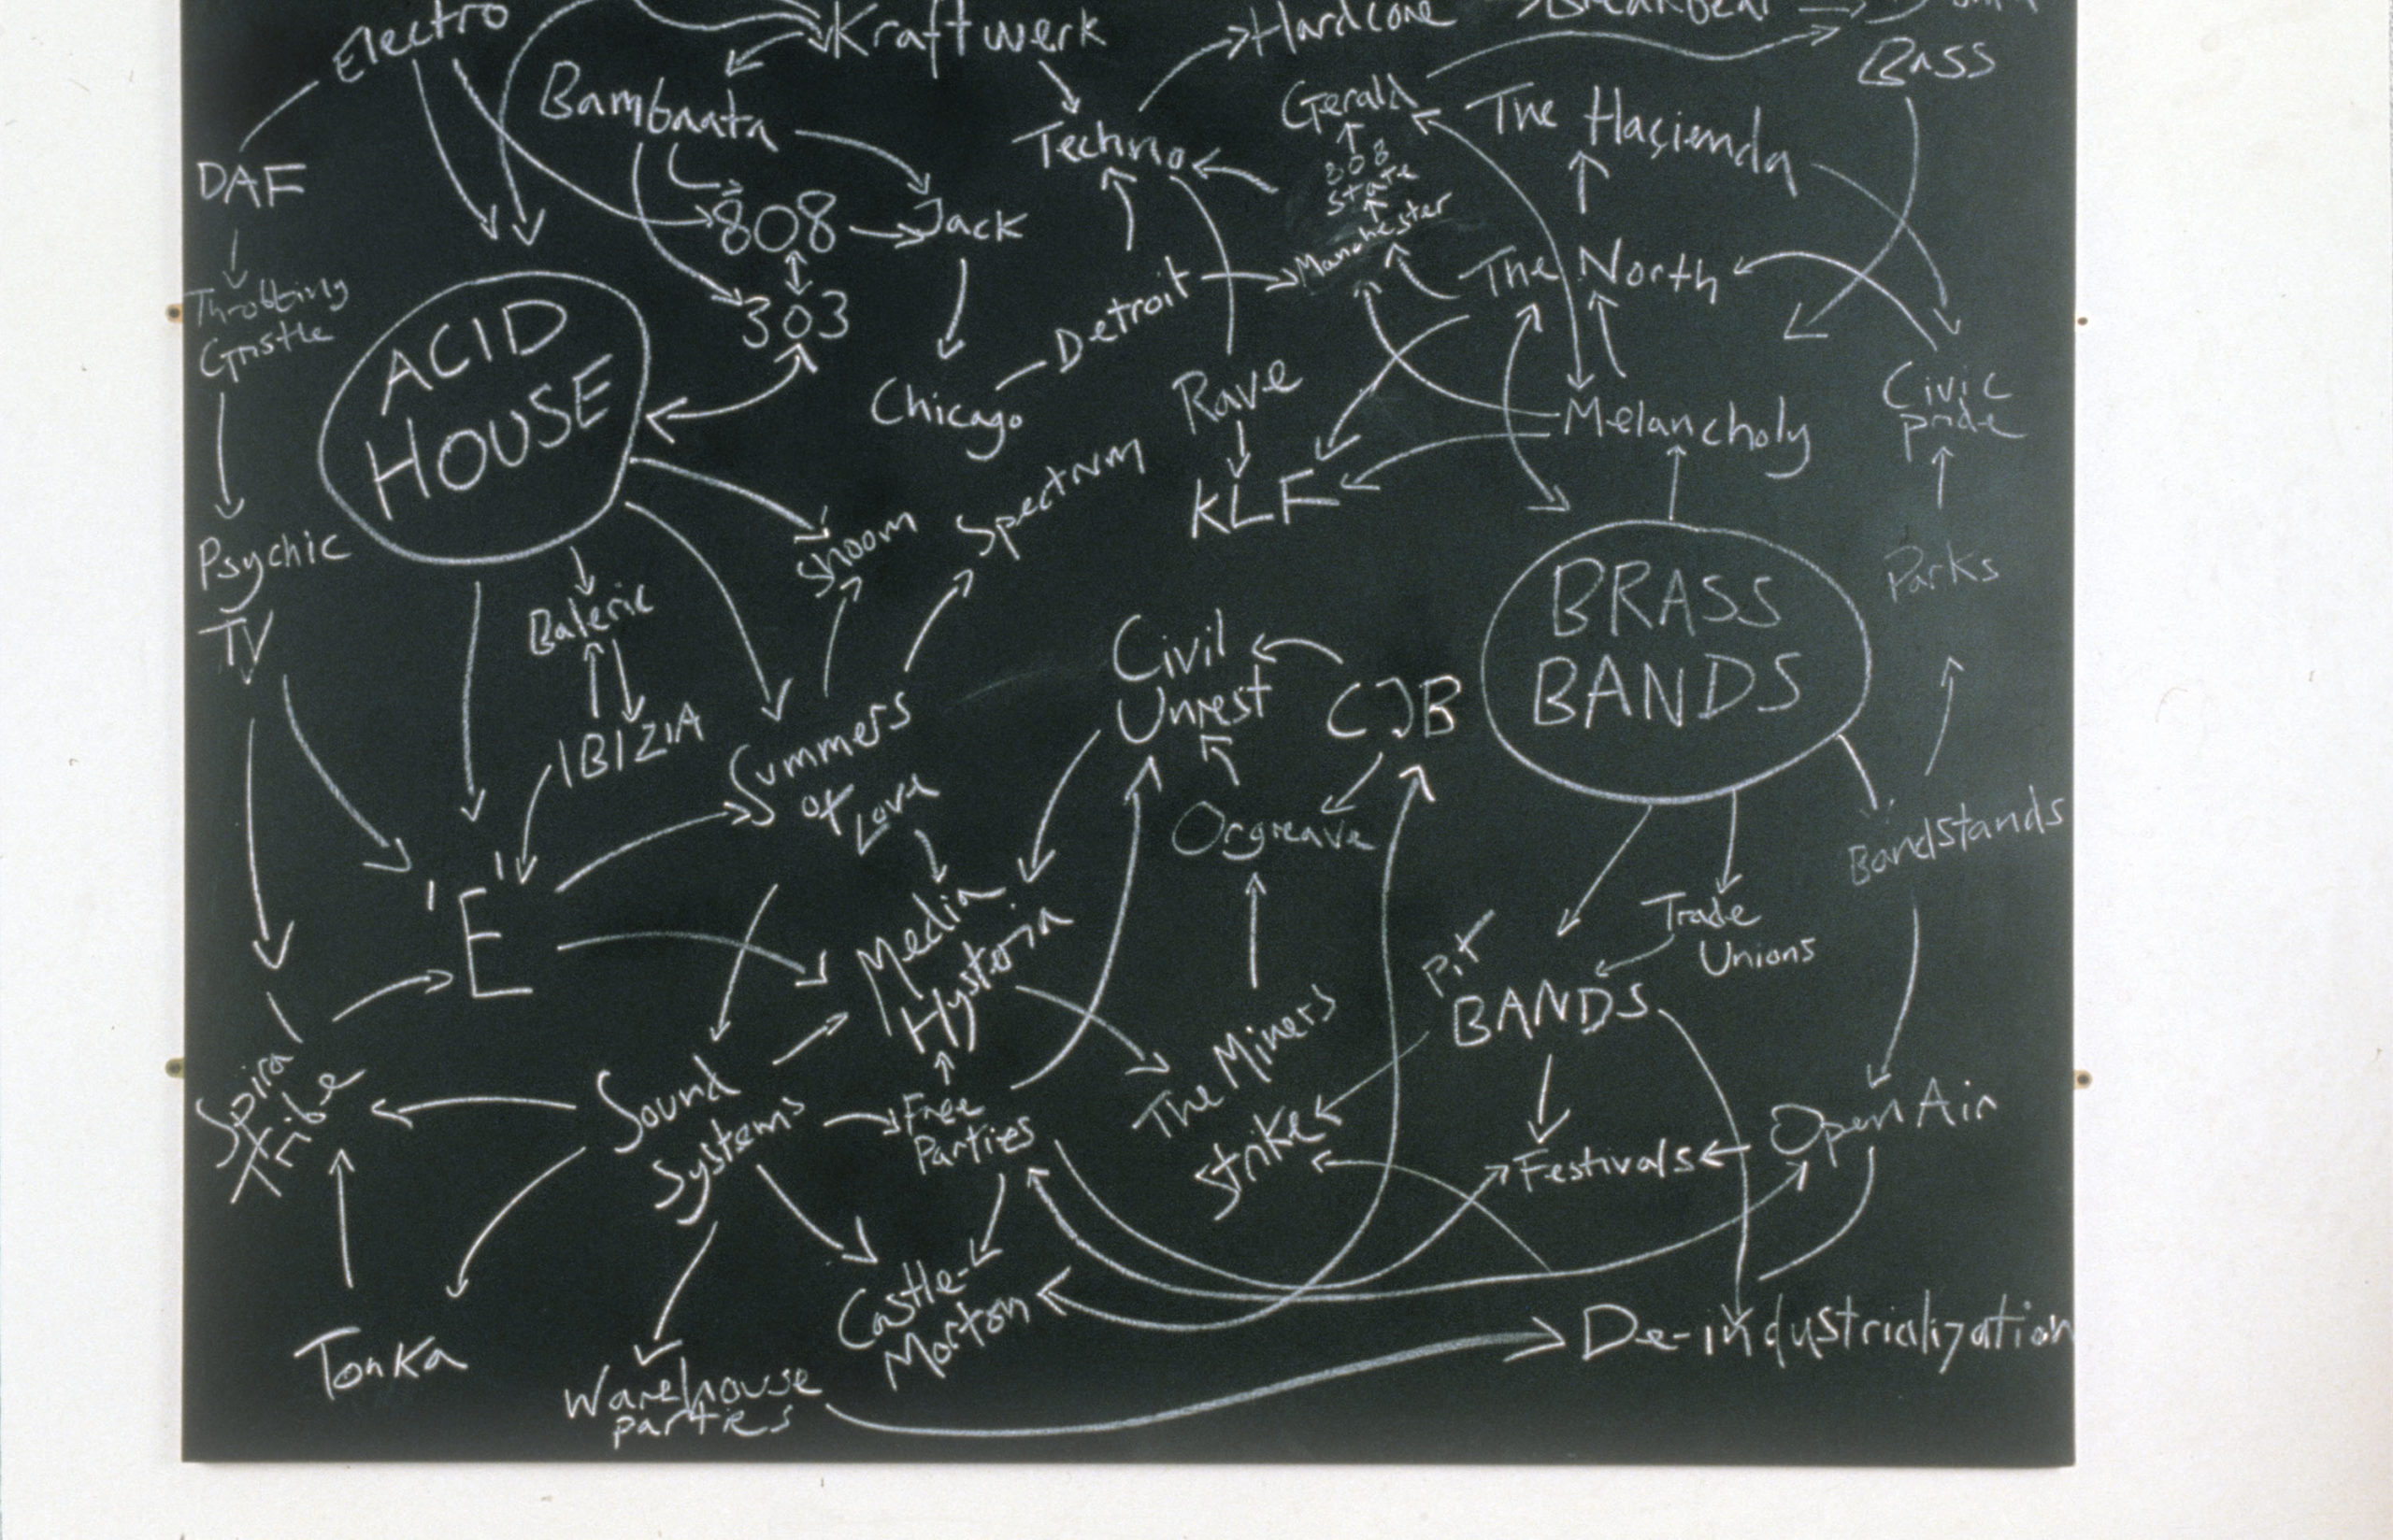 Electro
Kraftwerk
Hardcore
Breakbeat
Bass
Bambaata
Gerald
The Haçienda
Techno
808
State
DAF
808
Jack
Manchester
The North
Detroit
Throbbing
Gristle
303
ACID
HOUSE
Chicago
Rave
Melancholy
Civic
pride
Spectrum
KLF
Shoom
Psychic
TV
Baleric
BRASS
BANDS
Parks
Civil
Unrest
CJB
IBIZIA
Summers
of
Love
Orgreave
Bandstands
'E'
Media
Hysteria
Trade
Unions
Pit
BANDS
The Miners
Strike
Spiral
Tribe
Sound
Systems
Free
Parties
Festivals
Open Air
Castle-
Morton
De-industrialization
Tonka
Warehouse
parties